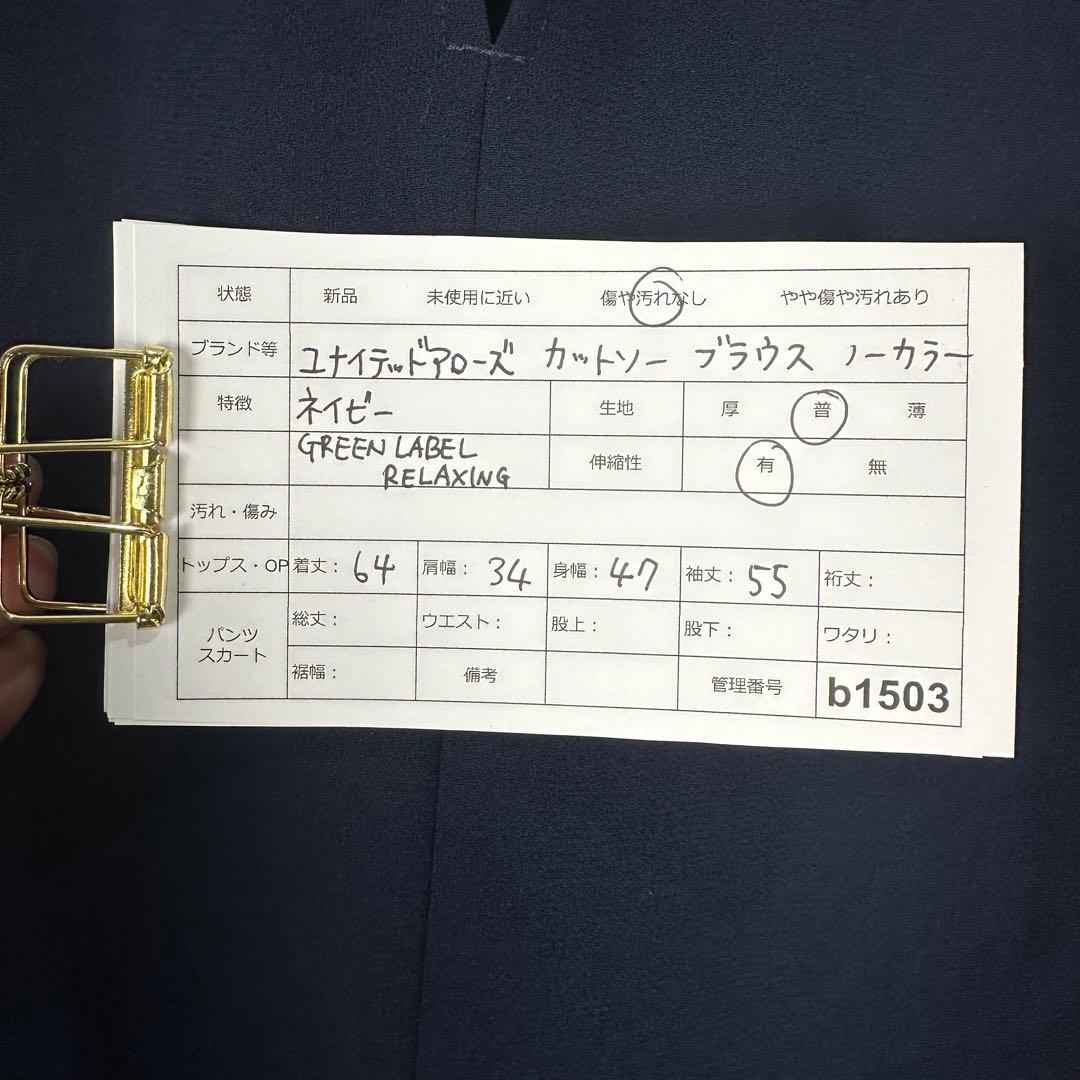 状態 新品 未使用に近い 傷や汚れなし やや傷や汚れあり
ブランド等 ユナイテッドアローズ カットソー ブラウス ノーカラー
特徴 ネイビー 生地 厚 普 薄
GREEN LABEL
RELAXING 伸縮性 有 無
汚れ・傷み
トップス・OP 着丈: 64 肩幅: 34 身幅: 47 袖丈: 55 裄丈:
パンツ
スカート
総丈: ウエスト: 股上: 股下: ワタリ:
裾幅: 備考 管理番号 b1503